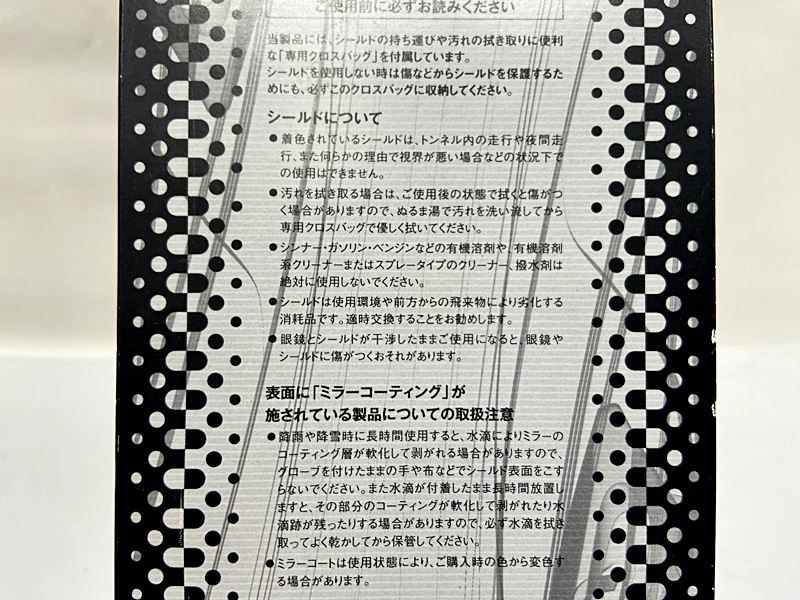 ご使用前に必ずお読みください
当製品には、シールドの持ち運びや汚れの拭き取りに便利
な「専用クロスバッグ」を付属しています。
シールドを使用しない時は傷などからシールドを保護するた
めにも、必ずこのクロスバッグに収納してください。
シールドについて
●着色されているシールドは、トンネル内の走行や夜間走
行、また何らかの理由で視界が悪い場合などの状況下で
の使用はできません。
●汚れを拭き取る場合は、ご使用後の状態で拭くと傷がつ
く場合がありますので、ぬるま湯で汚れを洗い流してから
専用クロスバッグで優しく拭いてください。
●シンナー・ガソリン・ベンジンなどの有機溶剤や、有機溶剤
系クリーナーまたはスプレータイプのクリーナー、撥水剤は
絶対に使用しないでください。
●シールドは使用環境や前方からの飛来物により劣化する
消耗品です。適時交換することをお勧めします。
●眼鏡とシールドが干渉したままご使用になると、眼鏡や
シールドに傷がつくおそれがあります。
表面に「ミラーコーティング」が
施されている製品についての取扱注意
●降雨や降雪時に長時間使用すると、水滴によりミラーの
コーティング層が軟化して剥がれる場合がありますので、
グローブを付けたままの手や布などでシールド表面をこす
らないでください。また水滴が付着したまま長時間放置し
ますと、その部分のコーティングが軟化して剥がれたり水
滴跡が残ったりする場合がありますので、必ず水滴を拭き
取ってよく乾かしてから保管してください。
●ミラーコートは使用状態により、ご購入時の色から変色す
る場合があります。